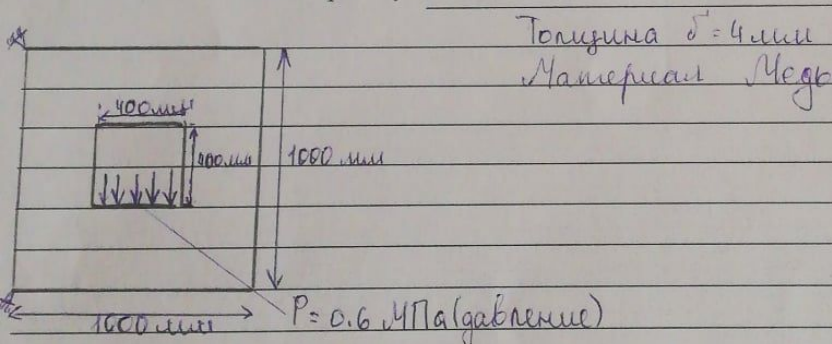 Толщина δ = 4 мм
Материал Медь
400мм
400мм
1000 мм
1000 мм
P = 0.6 МПа (давление)